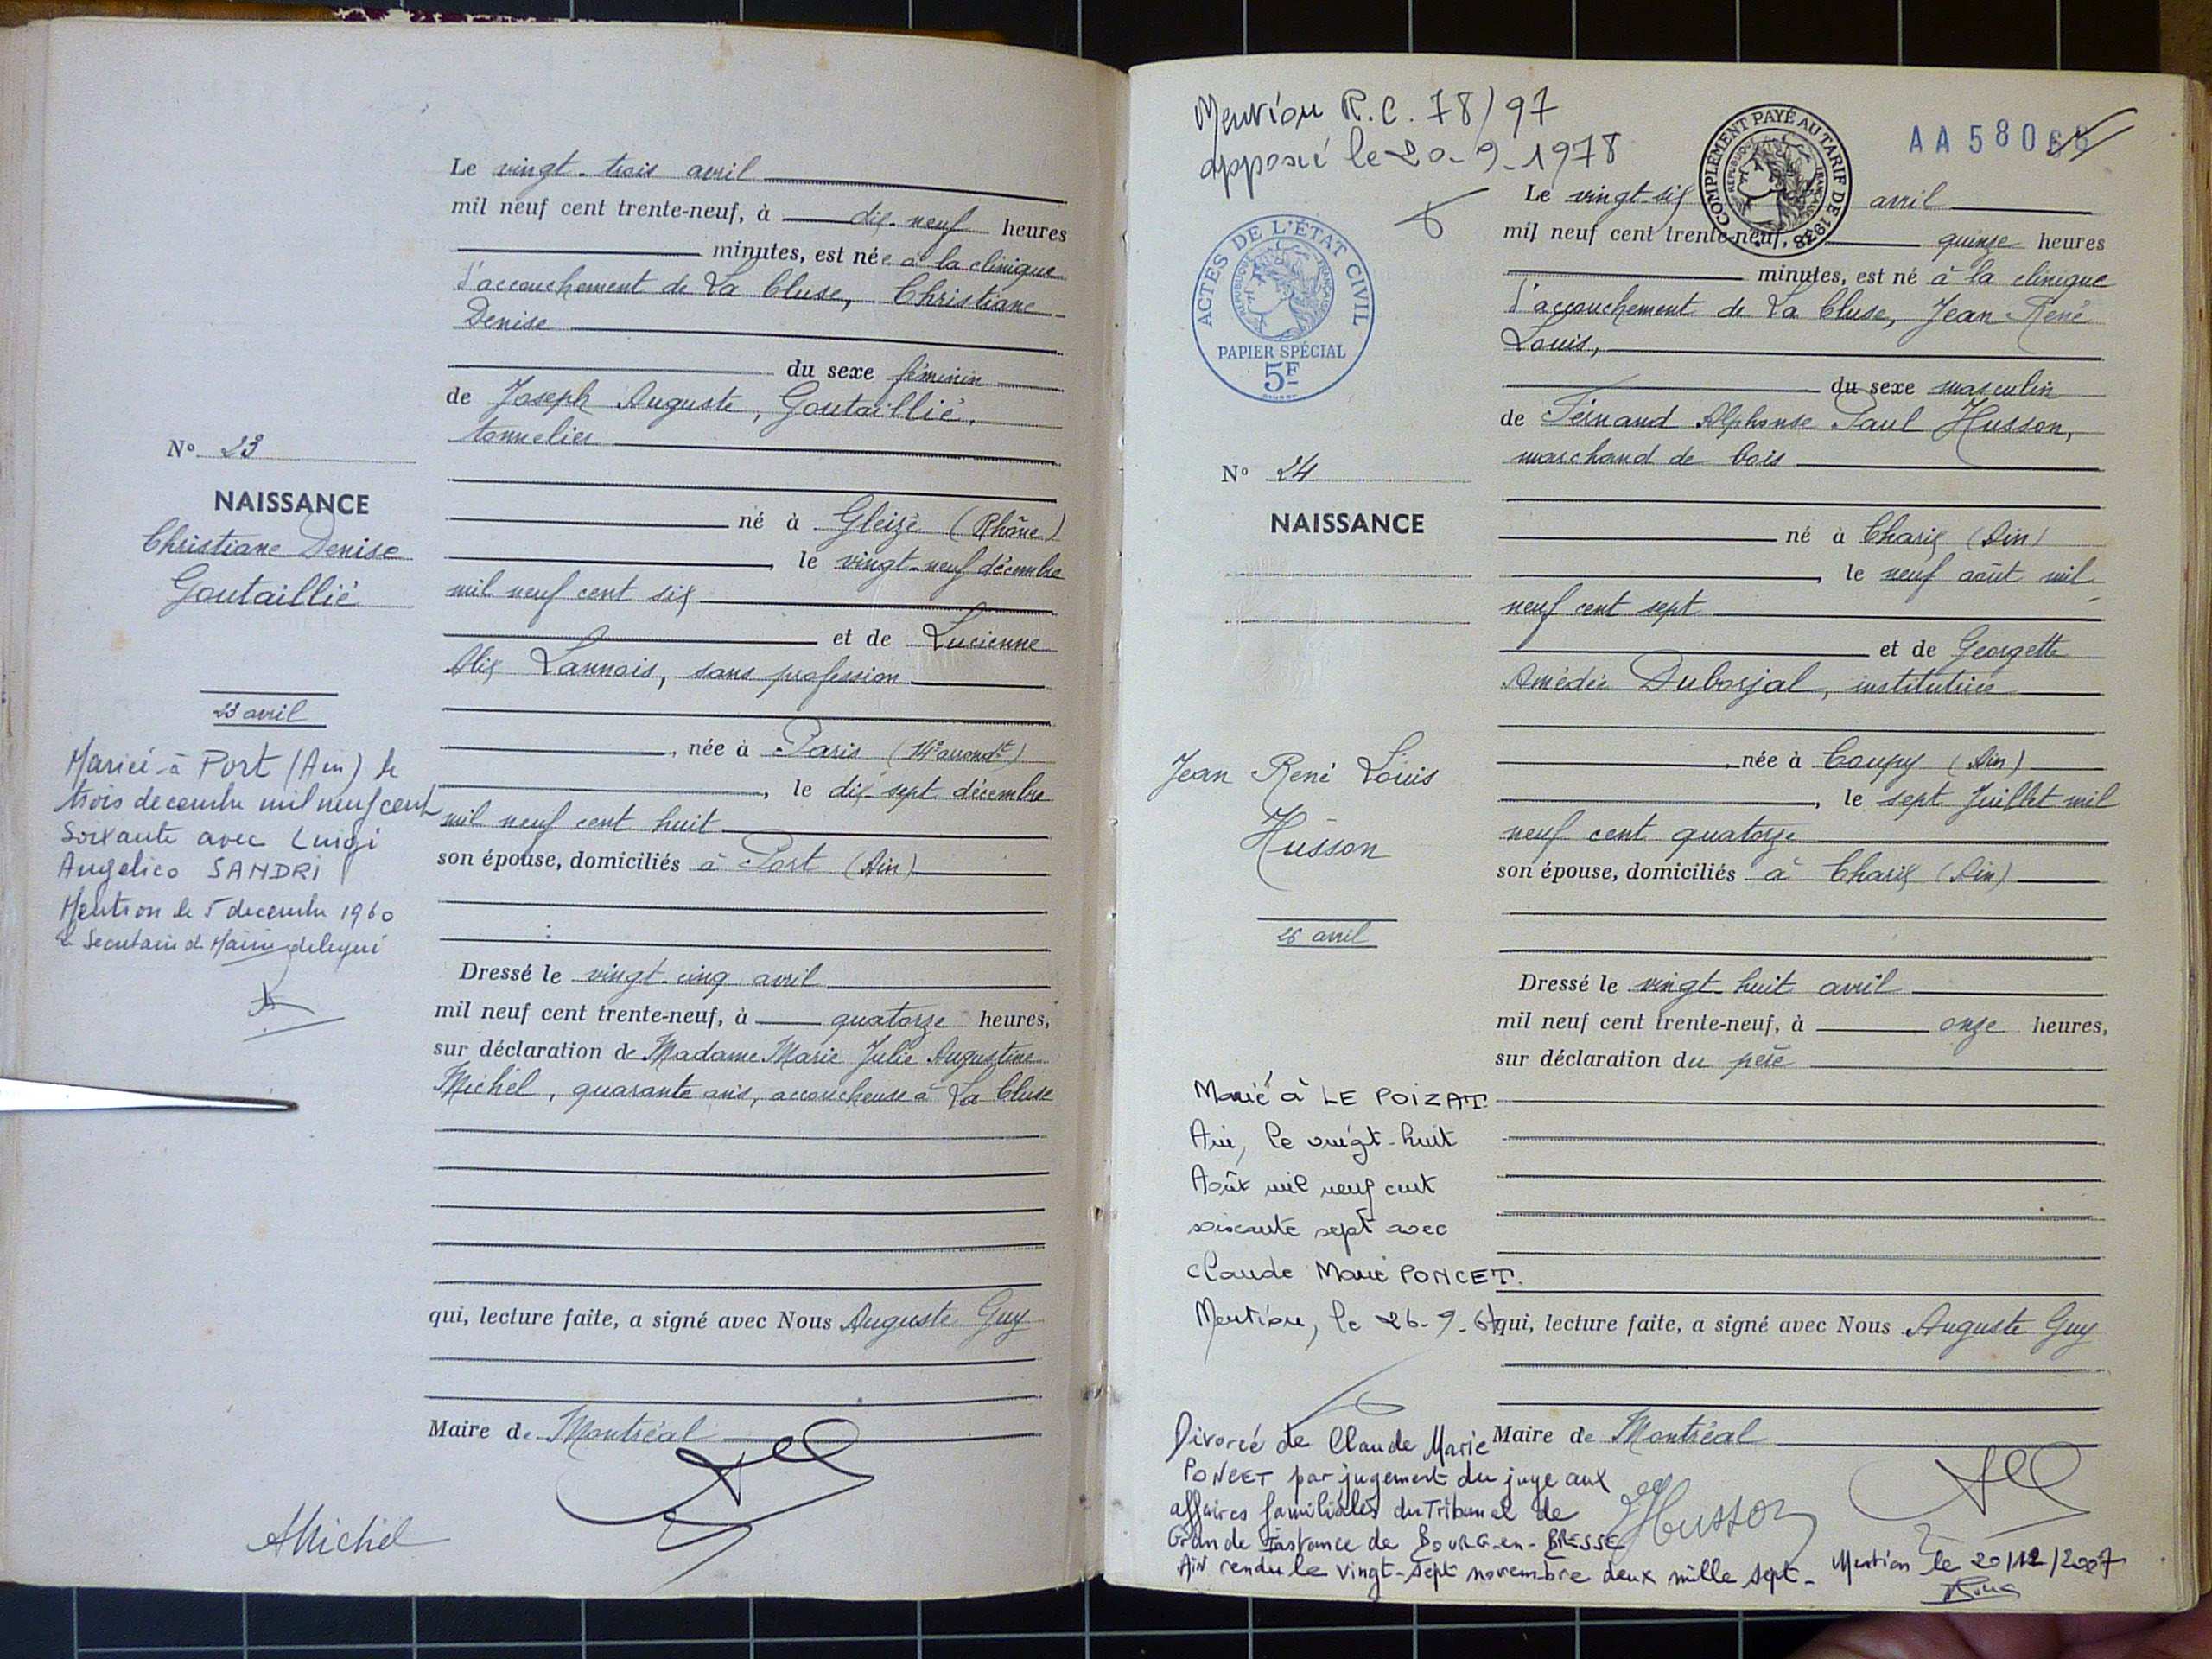 Le vingt-trois avril
mil neuf cent trente-neuf, à dix-neuf heures
minutes, est née à la clinique
d'accouchement de La Cluse, Christiane
Denise
du sexe féminin
de Joseph Auguste, Goutaillié,
tonnelier
né à Gleizé (Rhône)
, le vingt-neuf décembre
mil neuf cent six
et de Lucienne
Alix Lannois, sans profession
, née à Paris (14e arrondt)
, le dix-sept décembre
mil neuf cent huit
son épouse, domiciliés à Port (Ain)
Dressé le vingt-cinq avril
mil neuf cent trente-neuf, à quatorze heures,
sur déclaration de Madame Marie Julie Augustine
Michel, quarante ans, accoucheuse à La Cluse
qui, lecture faite, a signé avec Nous Auguste Guy
Maire de Montréal
AMichel
No 23
NAISSANCE
Christiane Denise
Goutaillié
23 avril
Mariée à Port (Ain) le
trois decembre mil neuf cent
Soixante avec Luigi
Angelico SANDRI
Mention le 5 decembre 1960
le Secretaire de Mairie delegué
Mention R.C. 78/97
apposée le 20-9-1978
COMPLÉMENT PAYÉ AU TARIF DE 1938
RÉPUBLIQUE FRANÇAISE
AA 580
ACTES DE L'ÉTAT CIVIL
RÉPUBLIQUE FRANÇAISE
PAPIER SPÉCIAL
5F
Le vingt-six avril
mil neuf cent trente-neuf, quinze heures
minutes, est né à la clinique
d'accouchement de La Cluse, Jean René
Louis,
du sexe masculin
de Fernand Alphonse Paul Husson,
marchand de bois
né à Charix (Ain)
, le neuf août mil
neuf cent sept
et de Georgette
Amédée Duborjal, institutrice
née à Coupy (Ain)
, le sept Juillet mil
neuf cent quatorze
son épouse, domiciliés à Charix (Ain)
Dressé le vingt-huit avril
mil neuf cent trente-neuf, à onze heures,
sur déclaration du père
qui, lecture faite, a signé avec Nous Auguste Guy
Maire de Montréal
Husson
No 24
NAISSANCE
Jean René Louis
Husson
26 avril
Marié à LE POIZAT
Ain, le vingt-huit
Août mil neuf cent
soixante sept avec
Claude Marie PONCET.
Mention, le 26-9-67
Divorcé de Claude Marie
PONCET par jugement du juge aux
affaires familiales du Tribunal de
Grande Instance de BOURG-en-BRESSE
AIN rendu le vingt-sept novembre deux mille sept- Mention le 20/12/2007